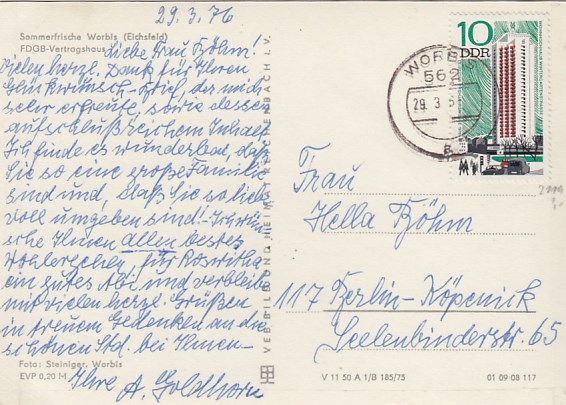 29.3.76
Sommerfrische Worbis (Eichsfeld)
FDGB-Vertragshaus
Liebe Frau Böhm!
Vielen herzl. Dank für Ihren
Glückwunsch-Brief, der mich
sehr erfreute, sowie dessen
aufschlußreichem Inhalt.
Ich finde es wunderbar, daß
Sie so eine große Familie
sind und, daß Sie so liebe-
voll umgeben sind! - Ich wün-
sche Ihnen allen bestes
Wohlergehen, für Roswitha
ein gutes Abi und verbleibe
mit vielen herzl. Grüßen
in treuem Gedenken an die
schönen Std. bei Ihnen -
Foto: Steiniger, Worbis
EVP 0,20 M
Ihre A. Goldhorn
VEB BILD UND HEIMAT REICHENBACH I. V.
10
DDR
WORBIS
562
29.3.
Frau
Hella Böhm
117 Berlin-Köpenick
Seelenbinderstr. 65
V 11 50 A 1/B 185/75
01 09 08 117